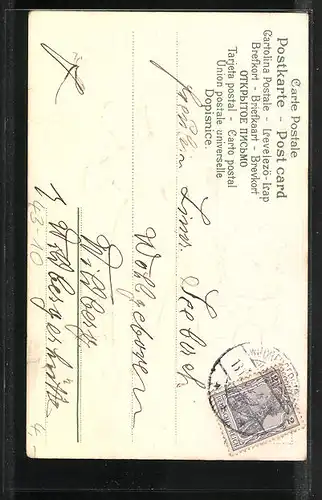 Carte Postale
Postkarte - Post card
Cartolina Postale - Irevelező-lcap
Brefkort - Briefkaart - Brevkort
ОТКРЫТОЕ ПИСЬМО
Tarjeta postal - Carto postal
Union postale universelle
Dopisnice.
Fräulein Linn Seebisch
Wohlgeboren
Wildberg
b. Wildbergerhütte